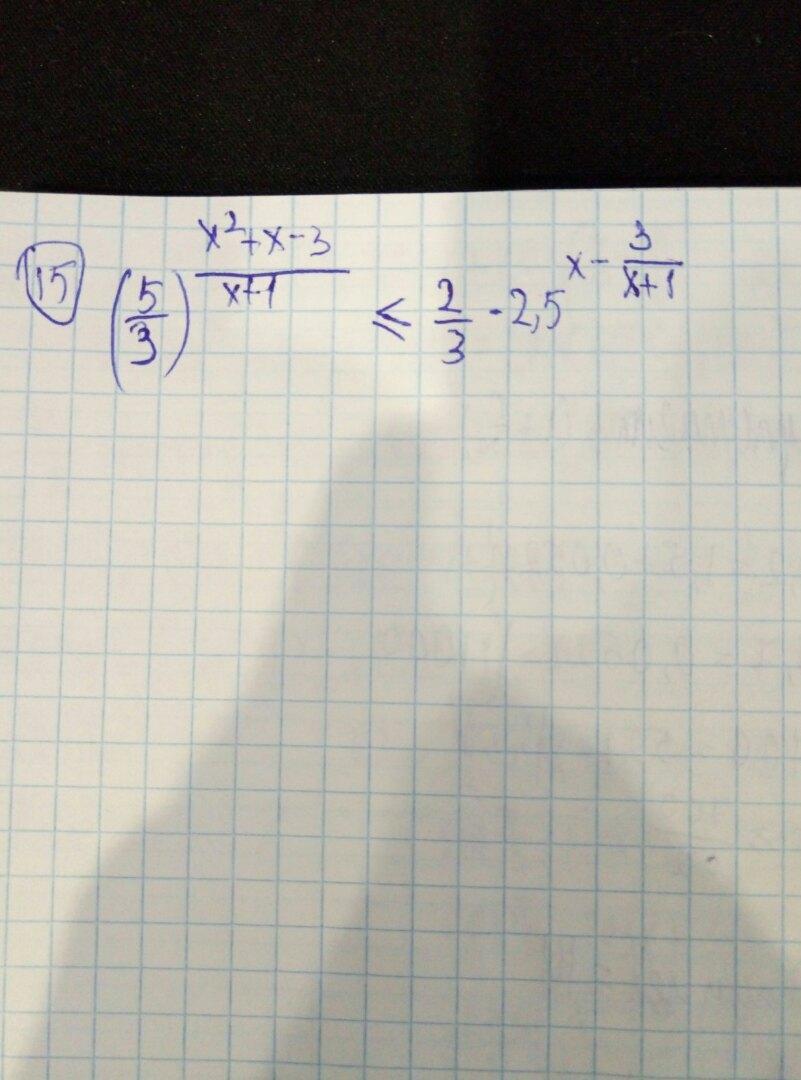 15 (5/3)^((x²+x-3)/(x+1)) ≤ 2/3 · 2,5^(x - 3/(x+1))